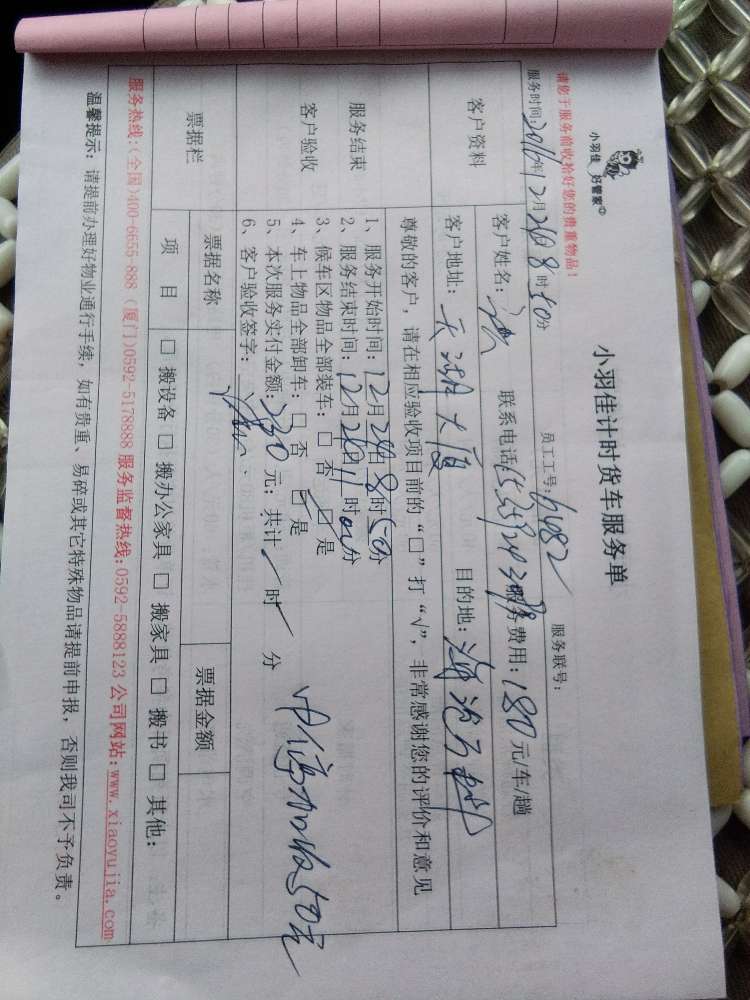 小羽佳 好管家
小羽佳计时货车服务单
请您于服务前收拾好您的贵重物品！
服务时间：2016年12月24日8时50分 员工工号：6482 服务联号：
客户资料
客户姓名： 联系电话 服务费用：180元/车/趟
客户地址：天湖大厦 目的地：海沧
服务结束
客户验收
尊敬的客户，请在相应验收项目前的“□”打“√”，非常感谢您的评价和意见
1、服务开始时间：12月24日8时50分
2、服务结束时间：12月24日11时00分
3、候车区物品全部装车：□ 否 □ 是
4、车上物品全部卸车：□ 否 □ 是
5、本次服务实付金额：230元；共计 时 分
6、客户验收签字：
中途加收50元
票据栏
票据名称 票据金额
项 目 □ 搬设备 □ 搬办公家具 □ 搬家具 □ 搬书 □ 其他：
服务热线:(全国)400-6655-888 (厦门)0592-5178888 服务监督热线:0592-5888123 公司网站:www.xiaoyujia.com
温馨提示：请提前办理好物业通行手续，如有贵重、易碎或其它特殊物品请提前申报，否则我司不予负责。